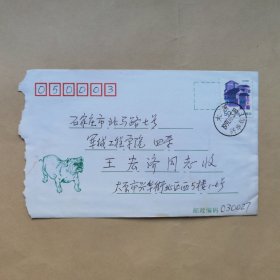 050003
石家庄市北马路七号
军械工程学院 四系
王宏济同志收
太原市兴华街北区西5楼
邮政编码 030027